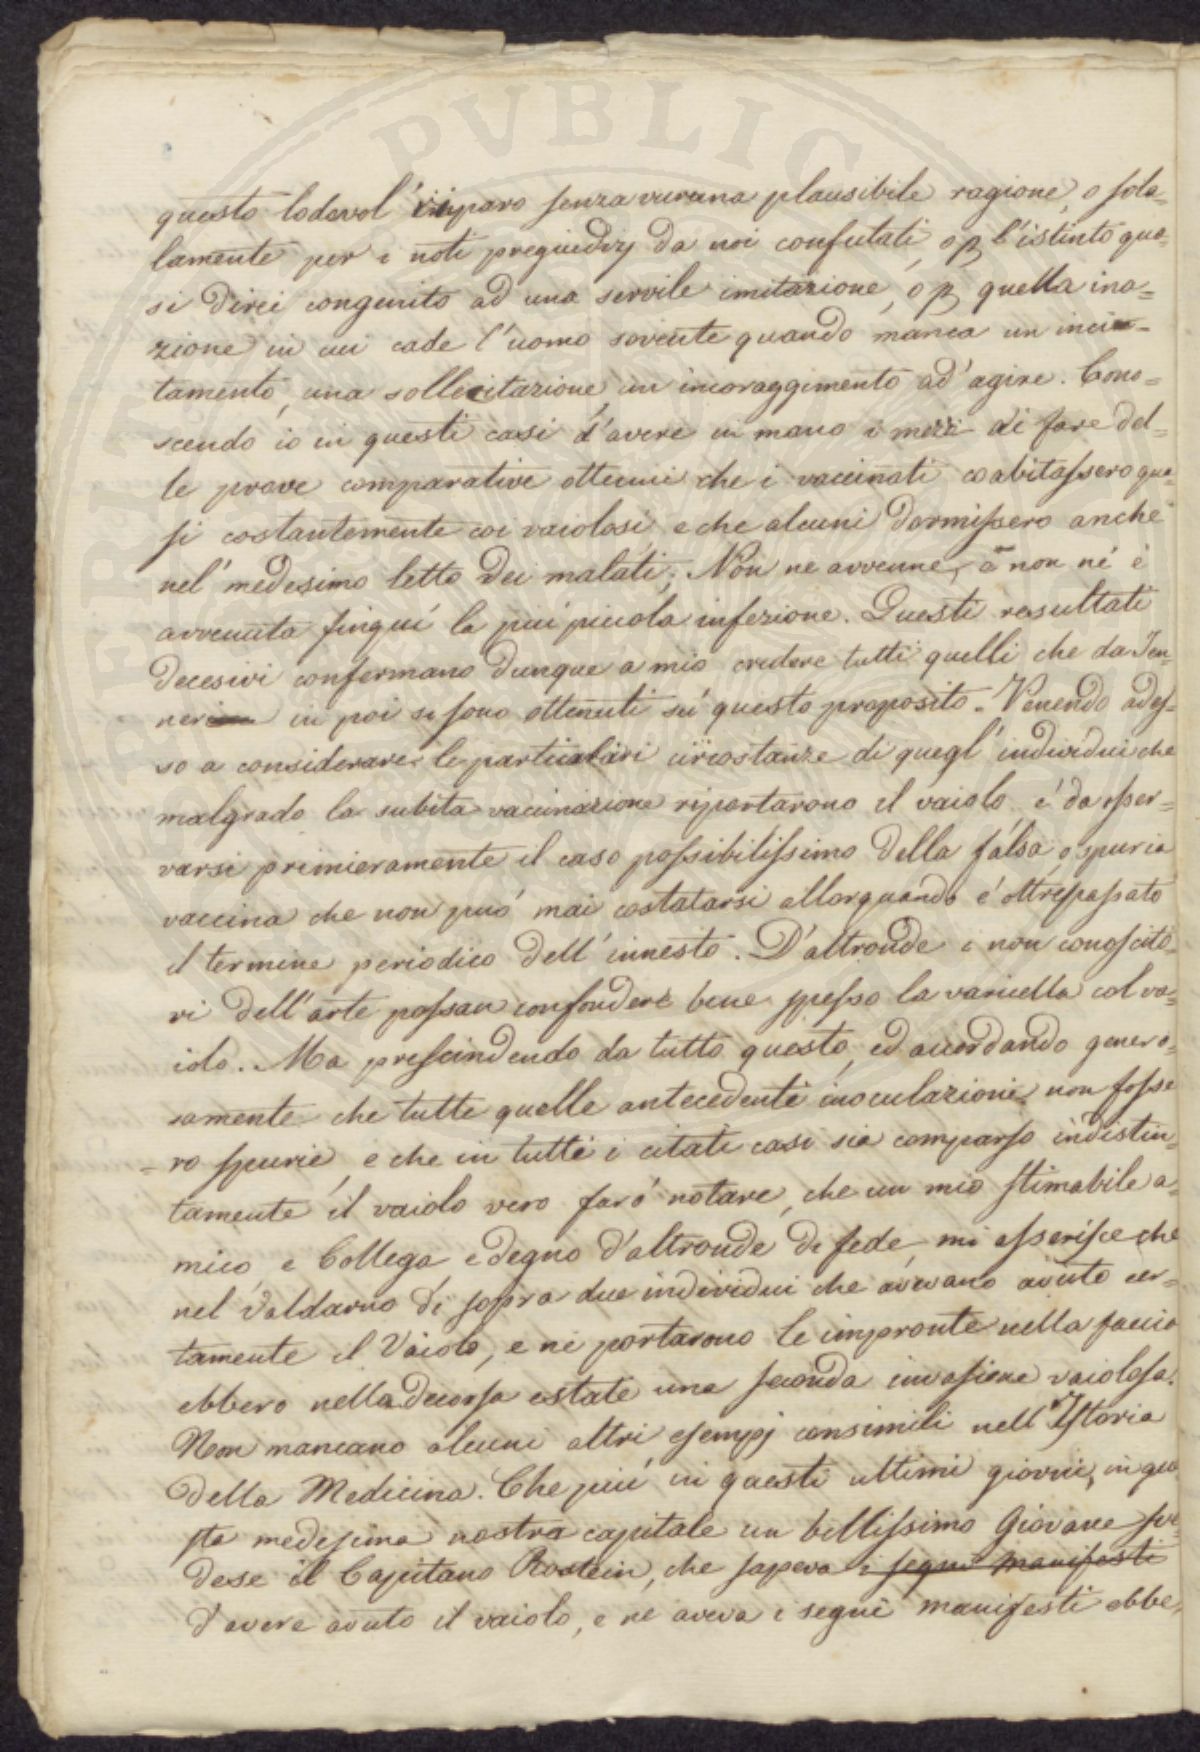 questo lodevol' riparo senza veruna plausibile ragione, o sola-
lamente per i noti pregiudizj da noi confutati, o p l'istinto qua-
si direi congenito ad una servile imitazione, o p quella ina=
zione in cui cade l'uomo sovente quando manca un inci-
tamento, una sollecitazione, un incoraggimento ad' agire. Cono=
scendo io in questi casi d'avere in mano i mezzi di fare del=
le prove comparative ottenni che i vaccinati coabitassero qua-
si costantemente coi vaiolosi, e che alcuni dormissero anche
nel' medesimo letto dei malati; Non ne avvenne, o non né è
avvenuta finquí la piú piccola infezione. Questi resultati
decesivi confermano dunque a mio credere tutti quelli che da Jen-
ner in poi si sono ottenuti sú questo proposito. Venendo ades-
so a considerare le particolari circostanze di quegl' individui che
malgrado la subita vaccinazione riportarono il vaiolo, é da osser=
varsi primieramente il caso possibilissimo della falsa, o spuria
vaccina che non puó mai costatarsi allorquando é oltrepassato
il termine periodico dell' innesto. D'altronde i non conoscito-
ri dell' arte possan confondere bene spesso la varicella col va-
iolo. Ma prescindendo da tutto questo, ed accordando genero=
samente che tutte quelle antecedenti inoculazioni non fosse
= ro spurie, e che in tutti i citati casi sia comparso indistin-
tamente il vaiolo vero faró notare, che un mio stimabile a-
mico e Collega, e degno d'altronde di fede, mi asserisce che
nel Valdarno di sopra due individui che avevano avuto cer-
tamente il Vaiolo, e ne portarono le impronte nella faccia
ebbero nella decorsa estate una seconda invasione vaiolosa.
Non mancano alcuni altri esempj consimili nell' Istoria
della Medicina. Che piú in questi ultimi giorni, in que
sta medesima nostra capitale un bellissimo Giovane sve-
dese il Capitano Rostein, che sapeva i segni manifesti
d'avere avuto il vaiolo, e ne aveva i segni manifesti ebbe,
PVBLIC